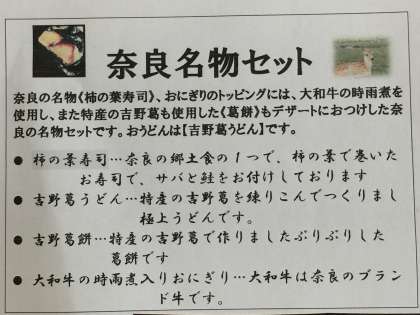 奈良名物セット
奈良の名物《柿の葉寿司》、おにぎりのトッピングには、大和牛の時雨煮を
使用し、また特産の吉野葛も使用した《葛餅》もデザートにおつけした奈
良の名物セットです。おうどんは【吉野葛うどん】です。
● 柿の葉寿司…奈良の郷土食の1つで、柿の葉で巻いた
お寿司で、サバと鮭をお付けしております
● 吉野葛うどん…特産の吉野葛を練りこんでつくりまし
極上うどんです。
● 吉野葛餅…特産の吉野葛で作りましたぷりぷりした
葛餅です
● 大和牛の時雨煮入りおにぎり…大和牛は奈良のブラン
ド牛です。